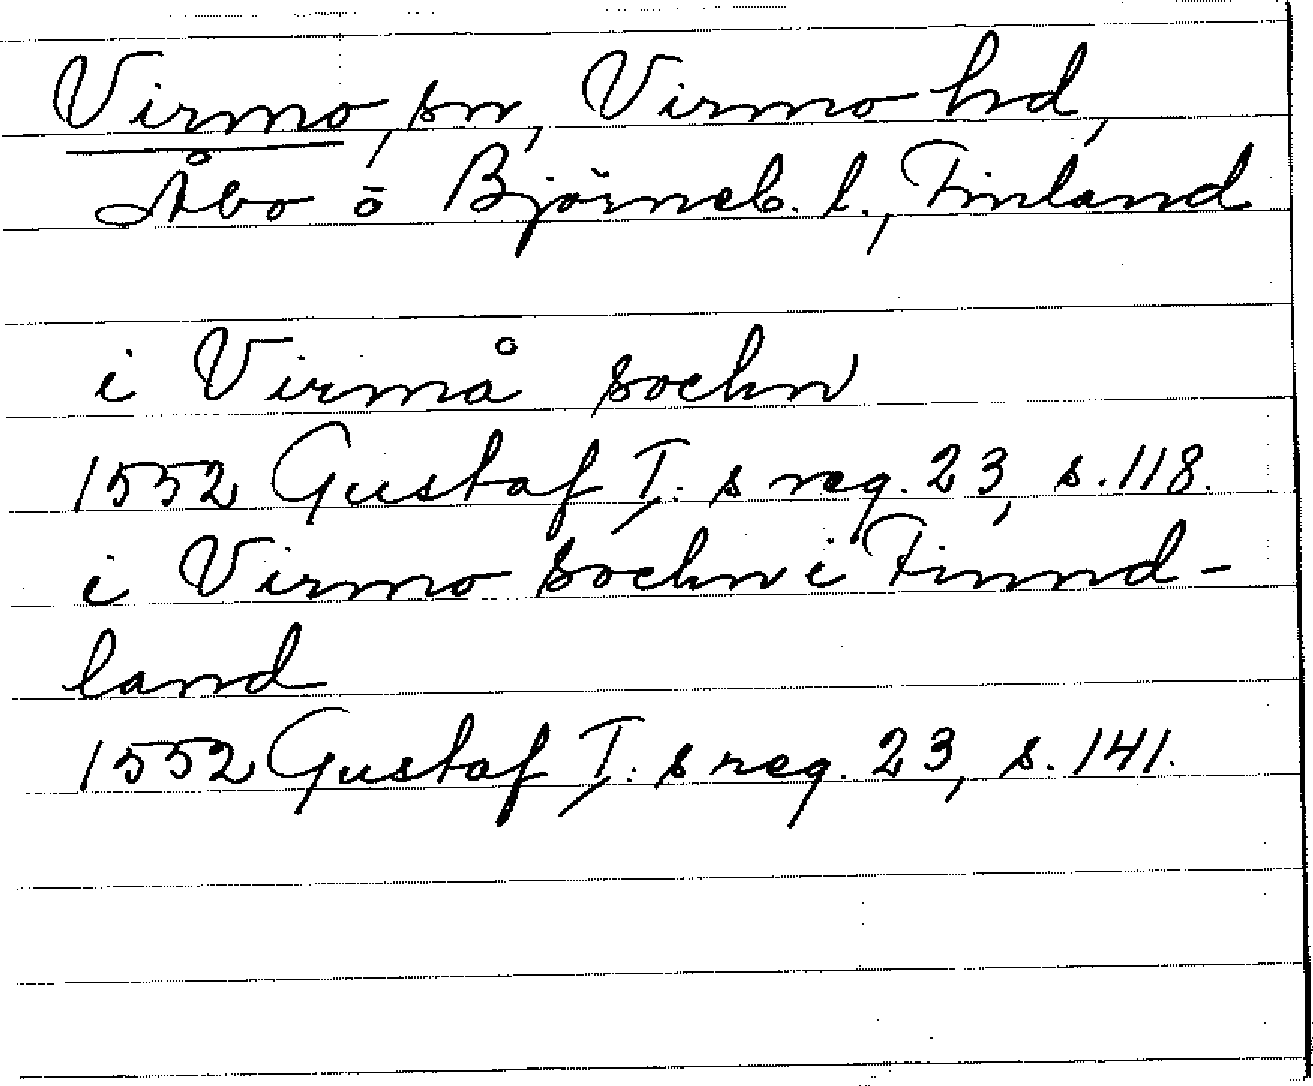 Virmo, sn, Virmo hd,
Åbo o Björneb. l., Finland
i Virmå sochn
1552 Gustaf I:s reg. 23, s. 118.
i Virmo sochn i Finnd-
land
1552 Gustaf I:s reg. 23, s. 141.